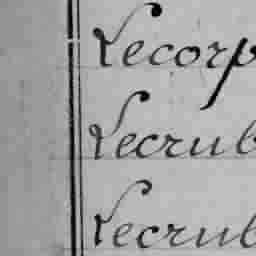 Lecorp
Lecrub
Lecrub